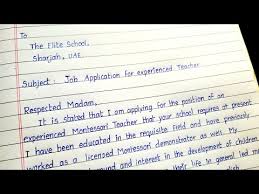 To
The Elite School,
Sharjah, UAE
Subject: Job Application for experienced Teacher
Respected Madam,
It is stated that I am applying for the position of an
experienced Montessori Teacher that your school requires at present
I have been educated in the requisite field and have previously
worked as a licensed Montessori demonstrator as well. My
ground and interest in the development of children
their life in general led me